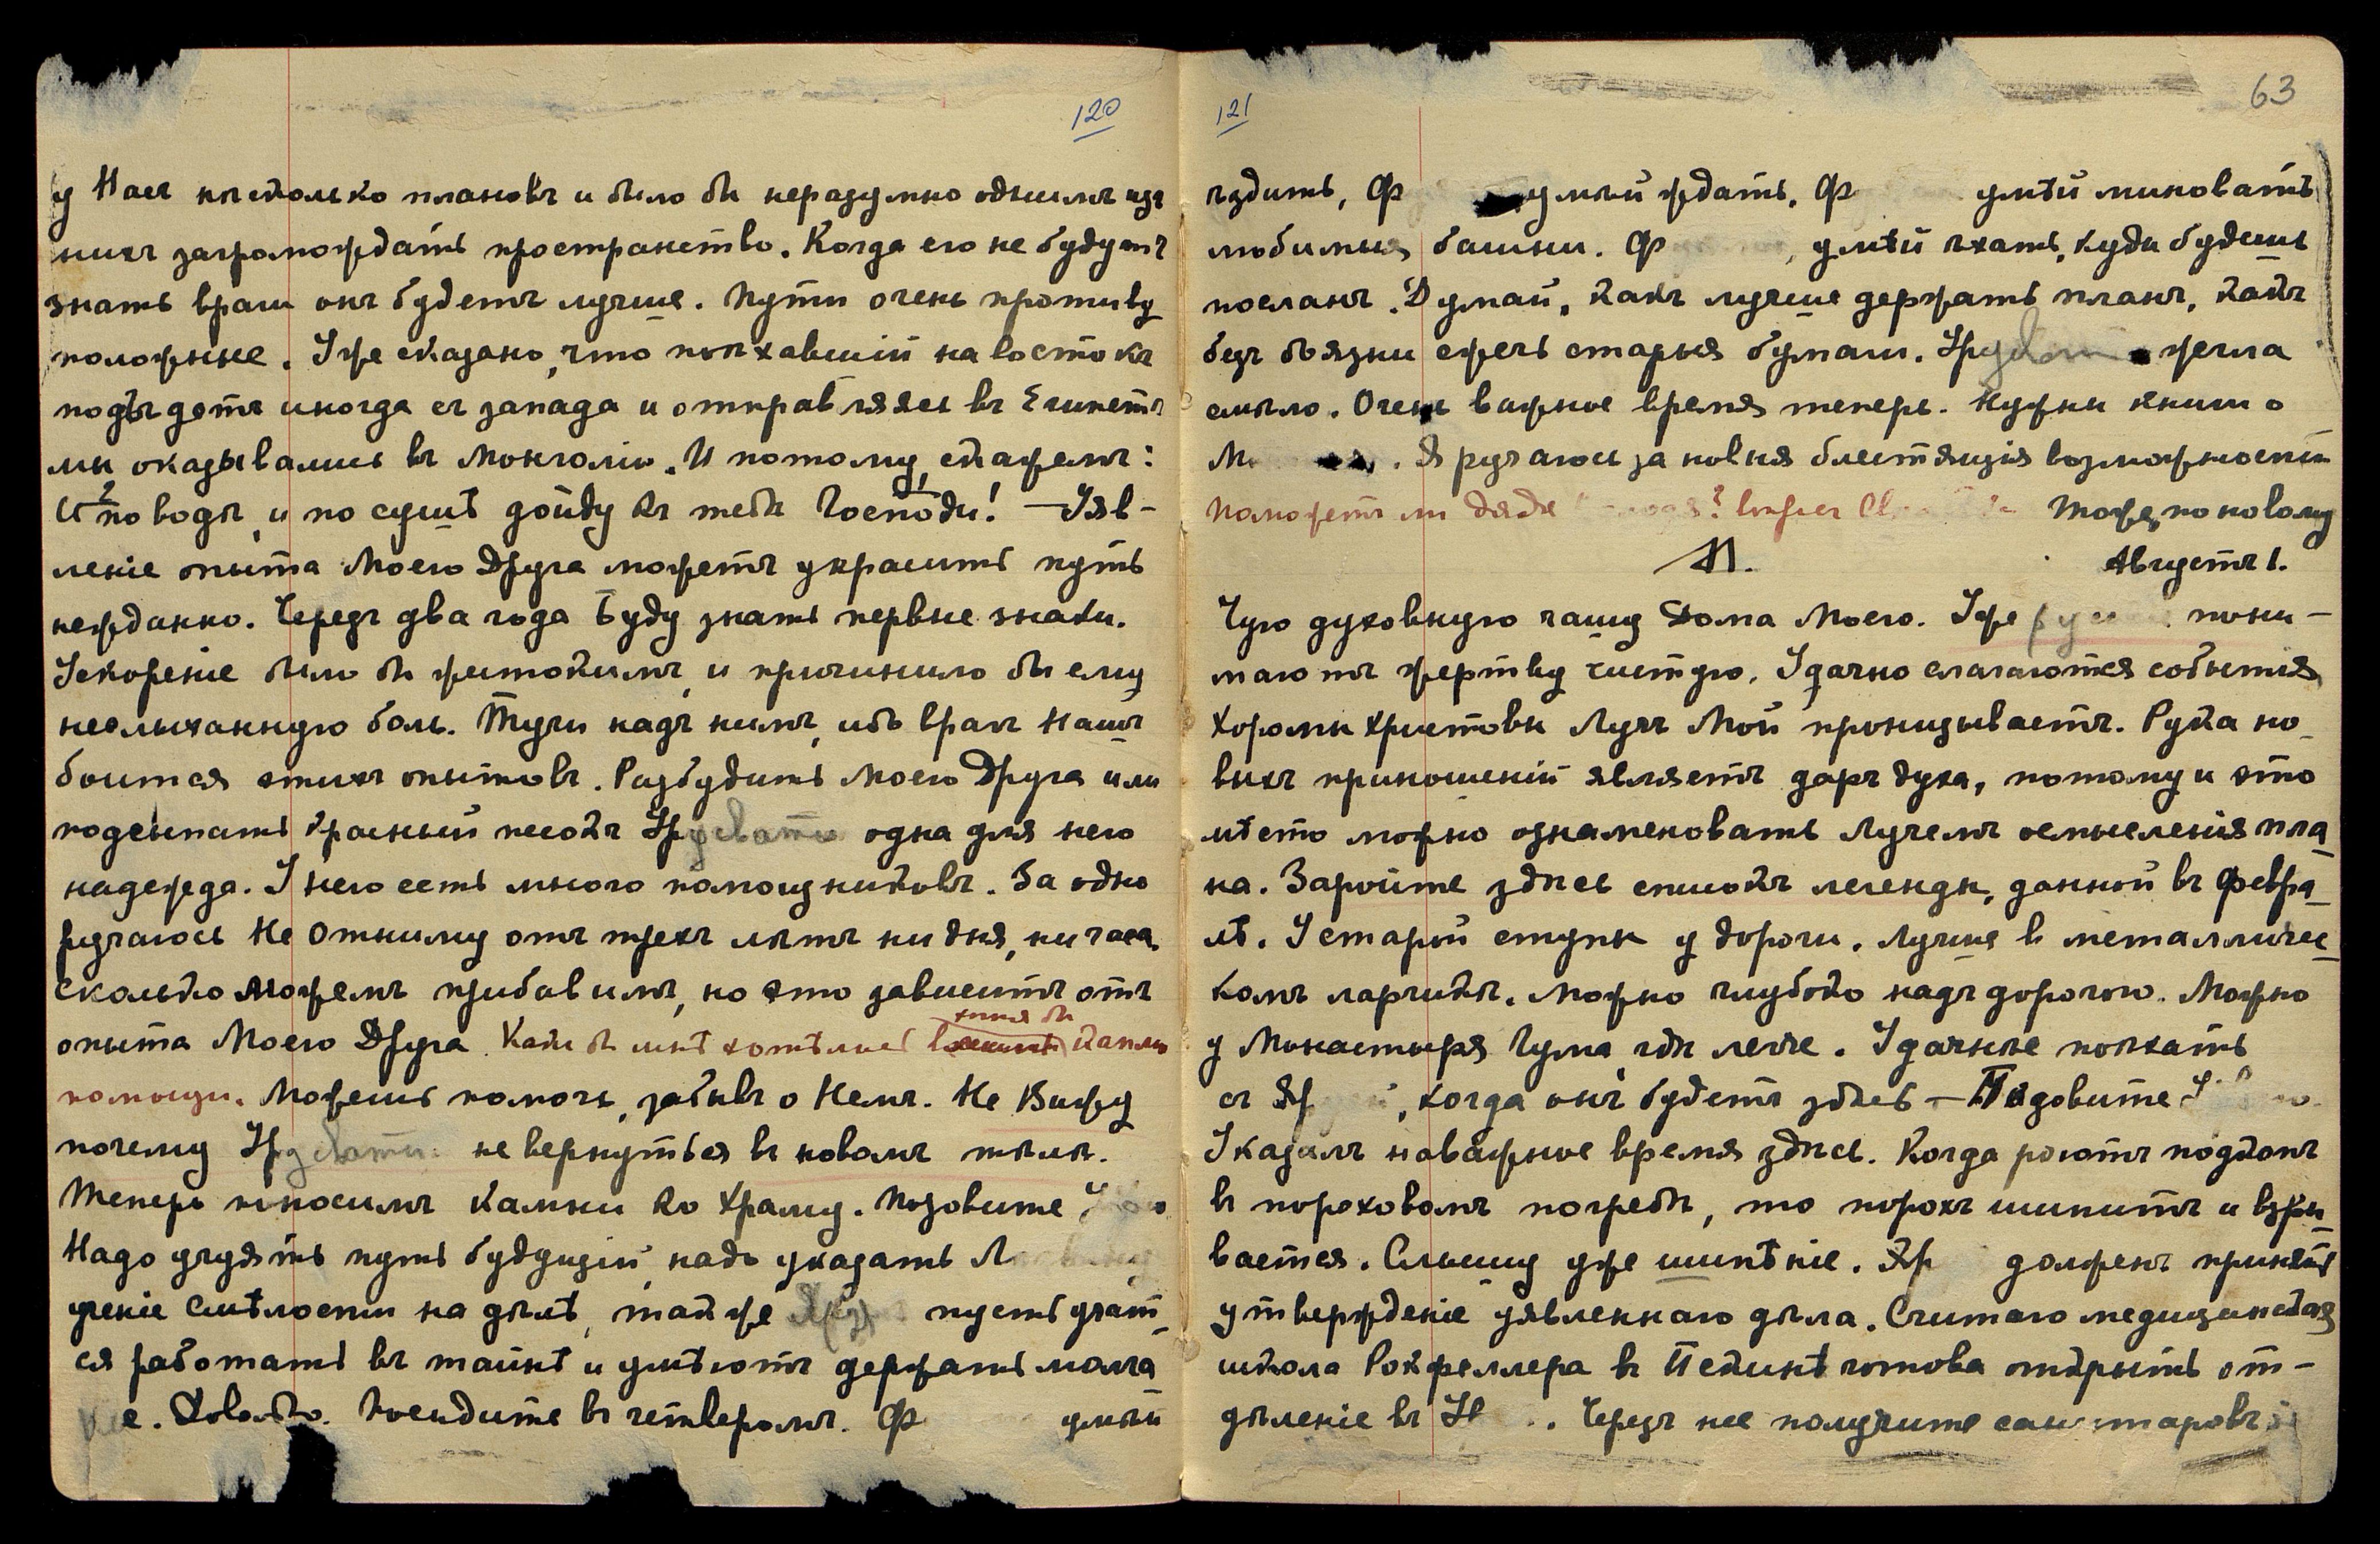 120
у Насъ нѣсколько плановъ и было бы неразумно однимъ изъ
нихъ загромождать пространство. Когда его не будутъ
знать враги онъ будетъ лучше. Пути очень противу
положные. Уже сказано, что поѣхавшій на востокъ
подъѣдетъ иногда съ запада и отправляясь въ Египетъ
мы оказывались въ Монголіи. И потому скажемъ:
И по водѣ, и по сушѣ дойду къ тебѣ Господи! — Уяв-
леніе опыта Моего Друга можетъ украсить путь
нежданно. Черезъ два года буду знать первые знаки.
Ускореніе было бы жестокимъ, и причинило бы ему
неслыханную боль. Тучи надъ нимъ, ибо врагъ Нашъ
боится этихъ опытовъ. Разбудить Моего Друга или
красный песокъ Урусвати одна для него
надежда. У него есть много помощниковъ. За одно
ручаюсь Не отниму отъ трехъ лѣтъ ни дня, ни часа.
Сколько можемъ прибавимъ, но это зависитъ отъ
хотя бы
опыта Моего Друга. Какъ бы мнѣ хотѣлось каплю
помощи. Можешь помочь, забывъ о Немъ. Не Вижу
почему Урусвати не вернуться въ новомъ тѣлѣ.
Теперь носимъ камни ко Храму. Позовите
Надо учуять путь будущій, надо указать
ученіе смѣлости на дѣлѣ, также пусть учат_
ся работать въ тайнѣ и умѣютъ держать молча_
е. Довольно. Посидите въ четверомъ. Ф умѣй
121
63
ѣздить, Ф умѣй ждать, Ф умѣй миновать
любимыя башни. Ф , умѣй ѣхать, куда будешь
посланъ. Думай, какъ лучше держать планъ, какъ
безъ боязни сжечь старыя бумаги. Урусвати жгла
смѣло. Очень важное время теперь. Нужны книги о
М . Я ручаюсь за новыя блестящія возможности
Поможетъ ли дядя ? Тоже, по новому
М. Августъ 1.
Чую духовную чашу Дома Моего. Уже пони-
маютъ жертву чистую. Удачно слагаются событія,
хоромы Христовы Лучъ Мой пронизываетъ. Рука но_
выхъ приношеній являетъ даръ духа, потому и это
мѣсто можно ознаменовать Лучемъ осмысленія пла_
на. Заройте здѣсь списокъ легенды, данной въ Февра_
лѣ. У старой ступы у дороги. Лучше в металличес_
комъ ларчикѣ. Можно глубоко надъ дорогою. Можно
у Монастыря Гума, гдѣ легче. Удачнѣе поѣхать
съ Яр , когда онъ будетъ здѣсь — Позовите
Указалъ на важное время здѣсь. Когда роютъ подкопъ
въ пороховомъ погребѣ, то порохъ шипитъ и взры_
вается. Слышу уже шипѣніе. Яр долженъ принять
утвержденіе уявленнаго дѣла. Считаю медицинская
школа Рокфеллера въ Пекинѣ готова открыть от-
дѣленіе въ У . Черезъ нее получите санитаровъ